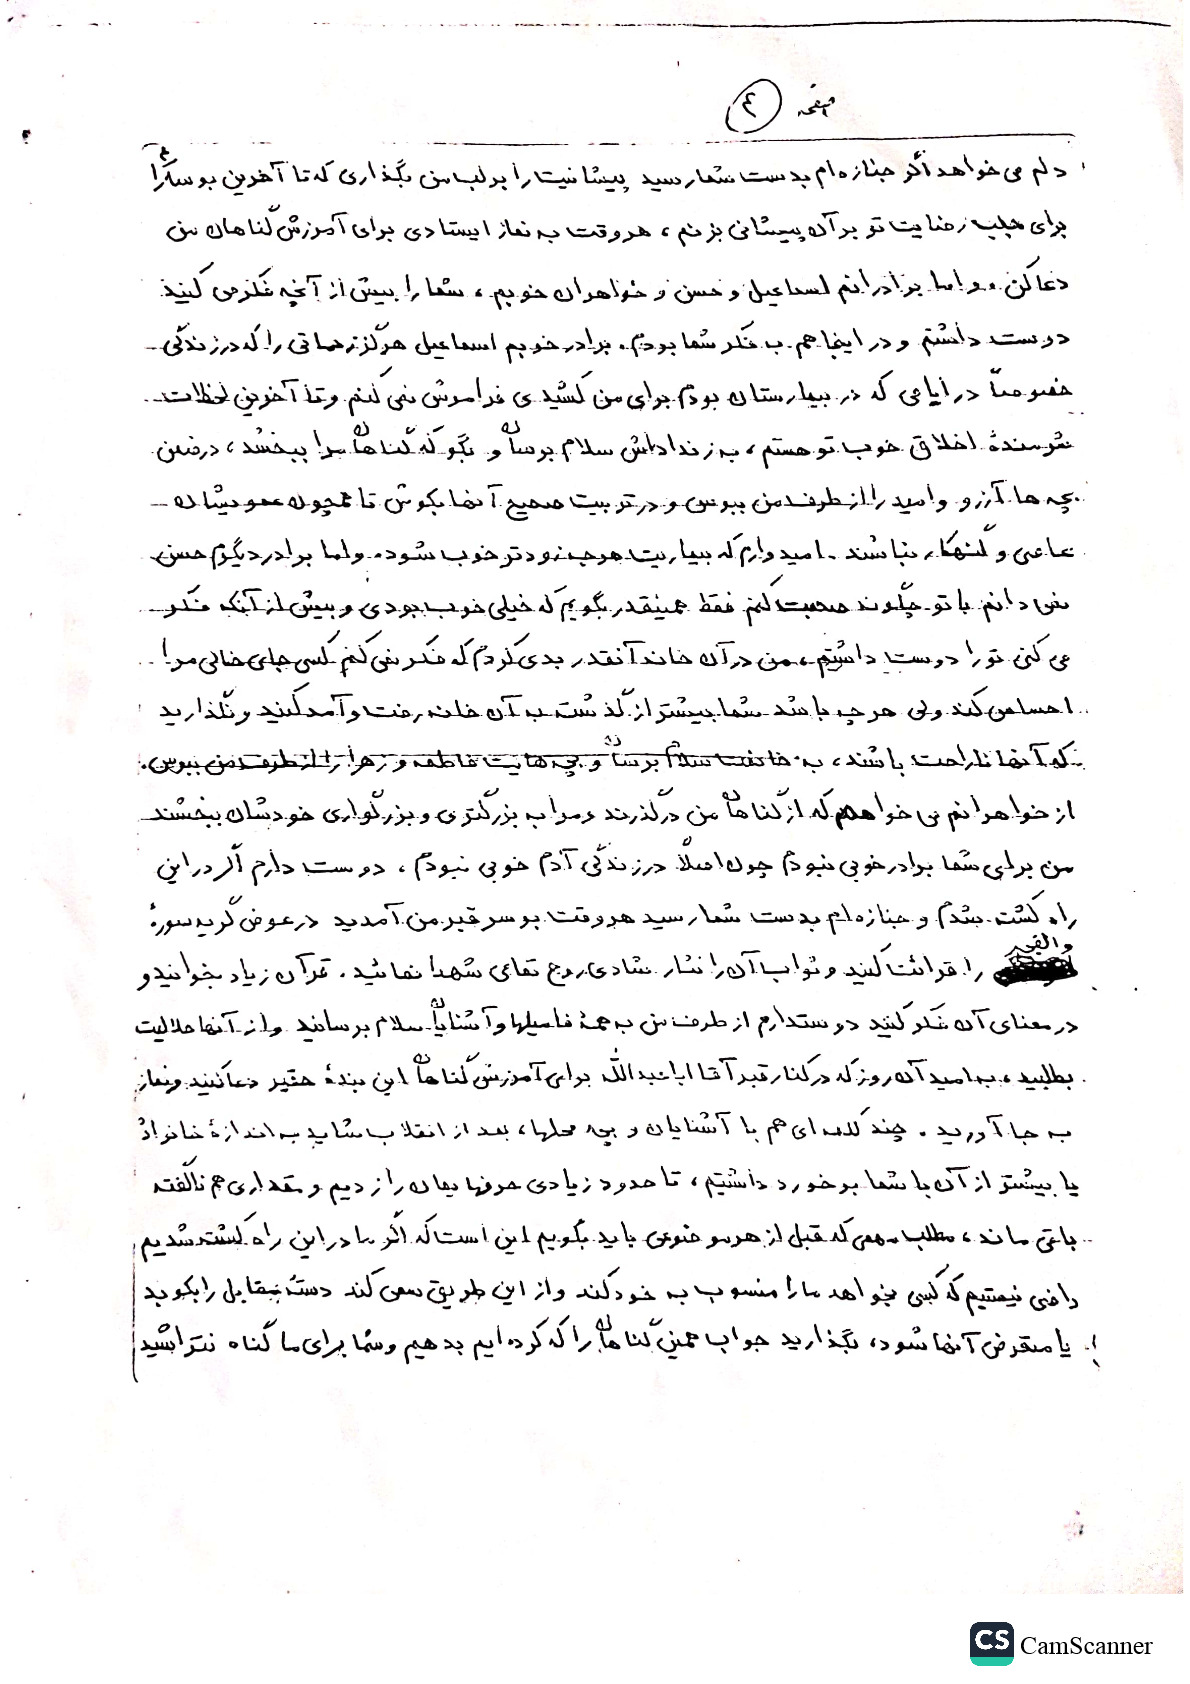 صفحه ۴
دلم می خواهد اگر جنازه ام بدست شما رسید پیشانیت را بر لب من بگذاری که تا آخرین بوسه ام را
برای جلب رضایت تو بر آن پیشانی بزنم ، هر وقت به نماز ایستادی برای آمرزش گناهان من
دعا کن . و اما برادرانم اسماعیل و حسن و خواهران خوبم ، شما را بیش از آنچه فکر می کنید
دوست داشتم و در اینجا هم به فکر شما بودم . برادر خوبم اسماعیل هرگز زحماتی را که در زندگی
خصوصاً در ایامی که در بیمارستان بودم برای من کشیدی فراموش نمی کنم و تا آخرین لحظات
شرمندهٔ اخلاق خوب تو هستم ، به زن داداش سلام برسان و بگو که گناهان مرا ببخشد ، در ضمن
بچه ها آرزو و امید را از طرف من ببوس و در تربیت صحیح آنها بکوش تا همچون عمویشان
عاصی و گنهکار نباشند . امیدوارم که بیماریت هر چه زودتر خوب شود . و اما برادر دیگرم حسن
نمی دانم با تو چگونه صحبت کنم فقط همینقدر بگویم که خیلی خوب بودی و بیش از آنکه فکر
می کنی تو را دوست داشتم ، من در آن خانه آنقدر بدی کردم که فکر نمی کنم کسی جای خالی مرا
احساس کند ولی هر چه باشد شما بیشتر از گذشته به آن خانه رفت و آمد کنید و نگذارید
که آنها ناراحت باشند ، به خانمت سلام برسان و بچه هایت فاطمه و زهرا را از طرف من ببوس .
از خواهرانم می خواهم که از گناهان من درگذرند و مرا به بزرگتری و بزرگواری خودشان ببخشند
من برای شما برادر خوبی نبودم چون اصلاً در زندگی آدم خوبی نبودم ، دوست دارم اگر در این
راه کشته شدم و جنازه ام بدست شما رسید هر وقت بر سر قبر من آمدید در عوض گریه سورهٔ
والفجر را قرائت کنید و ثواب آن را نثار شادی روح تمامی شهدا نمائید . قرآن زیاد بخوانید و
در معنای آن فکر کنید دوستدارم از طرف من به همهٔ فامیلها و آشنایان سلام برسانید و از آنها حلالیت
بطلبید ، به امید آن روز که در کنار قبر آقا اباعبدالله برای آمرزش گناهان این بندهٔ حقیر دعا کنید و نماز
به جا آورید . چند کلمه ای هم با آشنایان و بچه محلها ، بعد از انقلاب شاید به اندازهٔ خانواده
یا بیشتر از آن با شما برخورد داشتیم ، تا حدود زیادی حرفهایمان را زدیم و مقداری هم ناگفته
باقی ماند ، مطلب مهمی که قبل از هر موضوعی باید بگویم این است که اگر ما در این راه کشته شدیم
راضی نیستیم که کسی بخواهد ما را منسوب به خود کند و از این طریق سعی کند دستهٔ مقابل را بکوبد
یا متعرض آنها شود ، بگذارید جواب همین گناهان را که کرده ایم بدهیم و شما برای ما گناه نتراشید
CS CamScanner